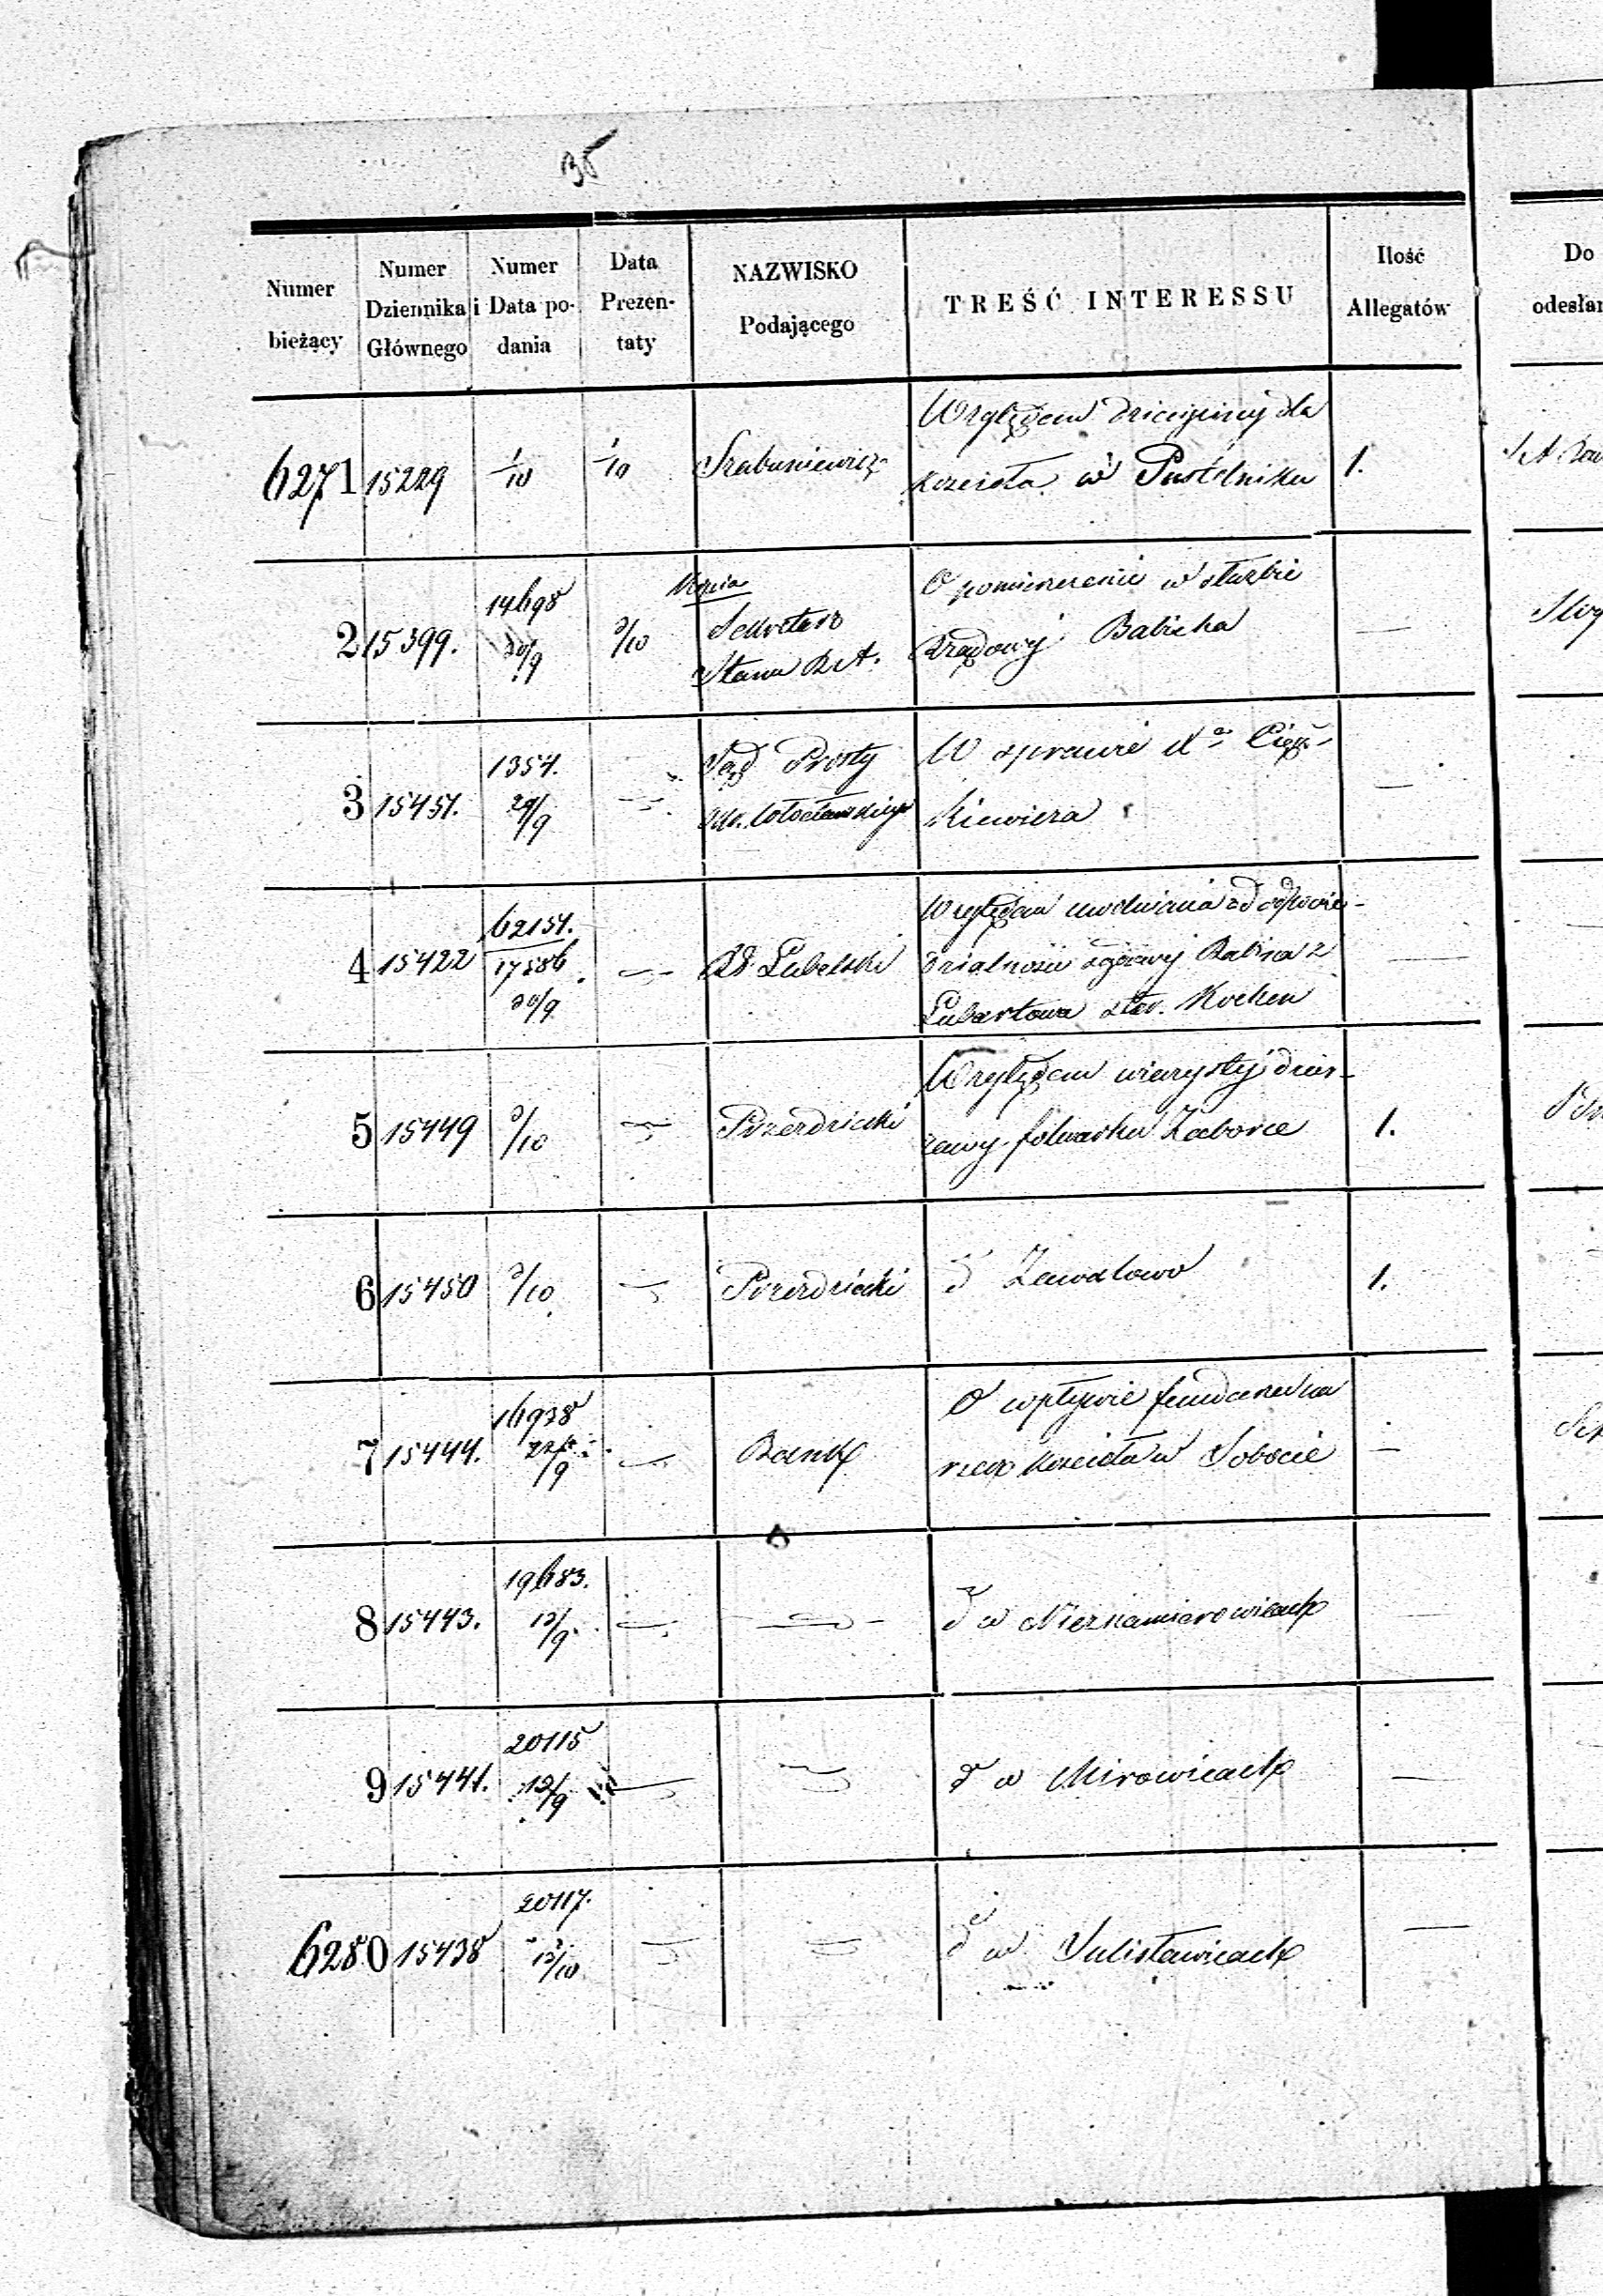 35
Numer bieżący
Numer Dziennika Głównego
Numer i Data podania
Data Prezentaty
NAZWISKO Podającego
TREŚĆ INTERESSU
Ilość Allegatów
Do
odesłan
6271 15229 1/10 1/10 Szabuniewicz
Względem
kościoła w Pustelniku 1.
2 15399. 14698 30/9 3/10
Sekretarz
Stanu
O pomieszczenie w służbie
Rządowy Babicha
3 15451. 1354. 29/9
Sąd Prosty
W sprawie Xa Cięż-
kiewicza
4 15422 62151. 17586 30/9 Lubelski
Względem uwolnienia od odpowie-
dzialności Rabina z
Lubartowa Kochen
5 15449 3/10 Przezdziecki
Względem wieczystej dzier-
żawy folwarku Zaborce 1.
6 15450 3/10 Przezdziecki
d Zawalowo 1.
7 15444. 16938 22/9 Bank
O wpływie funduszu na
rzecz kościoła w Sobocie
8 15443. 19683. 12/9
d w Nieznamierowicach
9 15441. 20115 12/9
d w Mirowicach
6280 15438 20117. 12/10
d w Sulisławicach